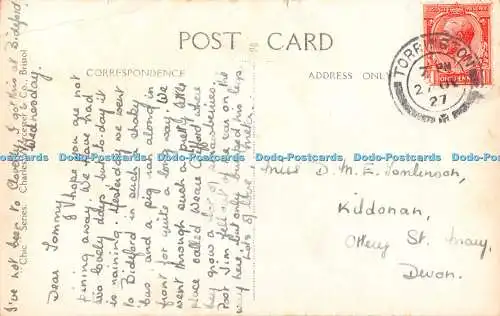 POST CARD
CORRESPONDENCE
ADDRESS ONLY
TORRINGTON
27
27
ONE PENNY
Chic Series Charles Worcester & Co., Bristol
I've not been to I got this at Bideford.
Wednesday.
Dear Tommy
I hope you are not
pining away. We have had
two lovely days but to-day it
is raining. Yesterday we went
to Bideford in such a shaky
bus and a pig ran along in
front for quite a long way. We
went through such a pretty little
place called Weare Giffard where
they grow a lot of strawberries.
Poor Jim fell off the car on the
way here but only hurt his legs.
Lots of love
Miss D. M. E. Tomlinson,
Kildonan,
Ottery St. Mary,
Devon.
Dodo-Postcards Dodo-Postcards Dodo-Postcards Dodo-Postcards Dodo-Postcards